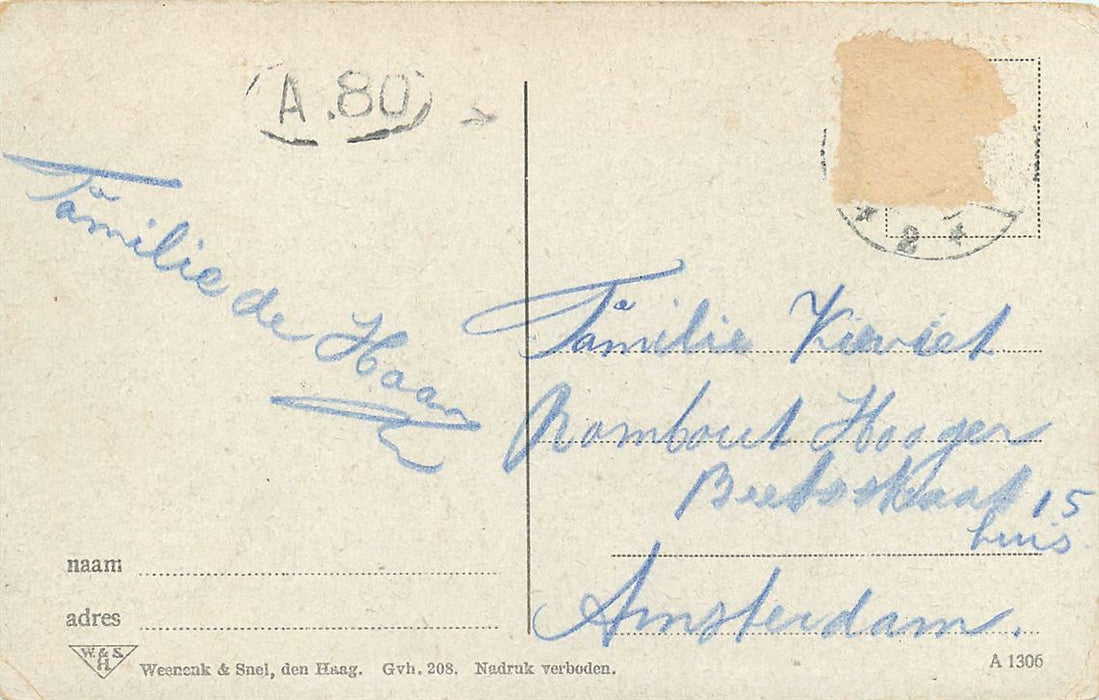 A.80
Familie de Haan
2
Familie Kieviet
Rombout Hooger
Beetsstraat 15
huis
Amsterdam.
naam
adres
W. & S.
H.
Weenenk & Snel, den Haag. Gvh. 208. Nadruk verboden.
A 1306